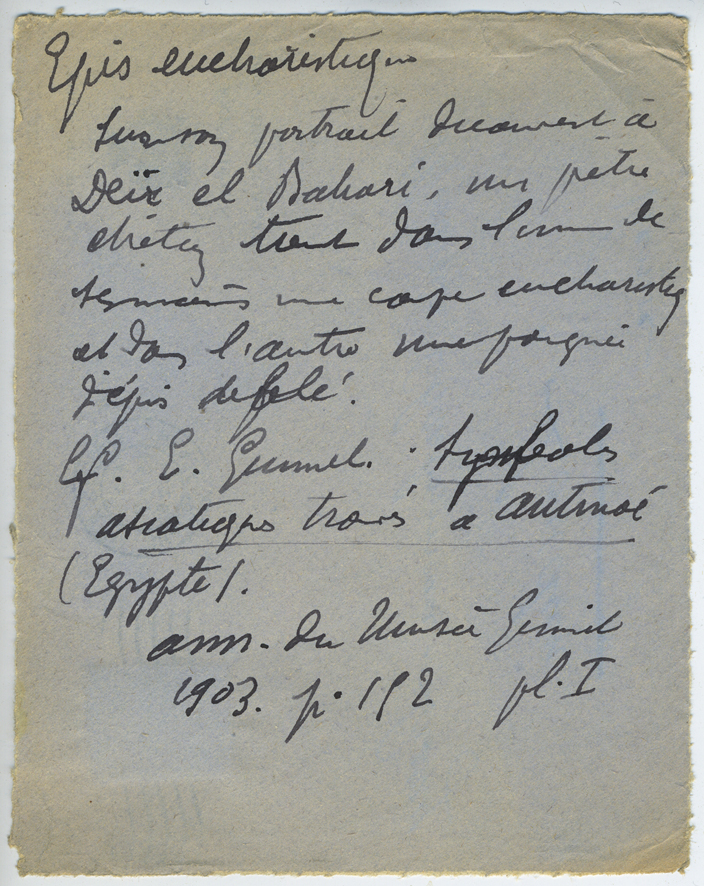 Epis eucharistique
Sur son portrait decouvert à
Deïr el Bahari, un prêtre
chrétien tient dans l'une de
ses mains une coupe eucharistiq
et dans l'autre une poignée
d'épis de blé.
Cf. E. Guimet. Symboles
asiatiques trouvés a antinoé
(Egypte).
ann. du Musée Guimet
1903. p. 152 pl. I